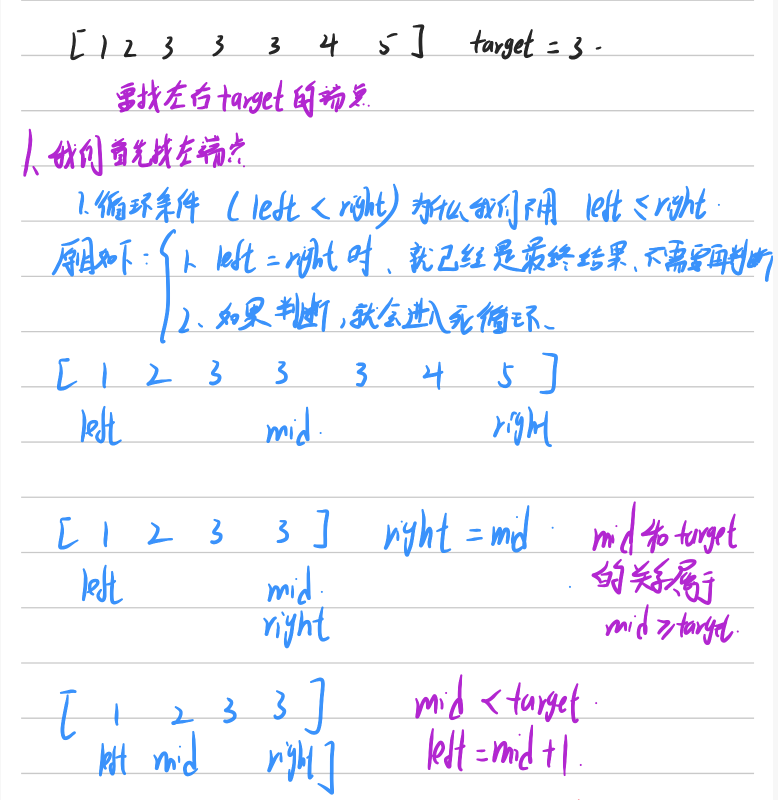 [ 1 2 3 3 3 4 5 ] target = 3.
要找左右target的端点.
1、我们首先找左端点
1.循环条件 ( left < right ) 为什么我们不用 left ≤ right.
原因如下: { 1、left = right 时、就已经是最终结果、不需要再判断
2、如果判断,就会进入死循环、
[ 1 2 3 3 3 4 5 ]
left mid. right
[ 1 2 3 3 ] right = mid. mid和target
left mid. 的关系属于
right mid ≥ target.
[ 1 2 3 3 ] mid < target.
left mid right ] left = mid + 1.